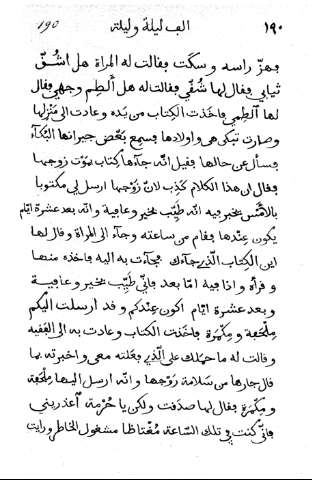 190 الف ليلة وليلة ١٩٠
فهزّ راسه وسكت فقالت له المراة هل اشُقّ
ثيابي فقال لها شُقّي فقالت له هل اَلطِم وجهي فقال
لها اَلطِمي فاخذت الكتاب من يده وعادت الى مَنْزِلِها
وصارت تبكي هي واولادها فسمع بَعْض جيرانها البُكآء
فسأل عن حالها فقيل انّه جآءها كتاب بموْت زوجها
فقال ان هذا الكلام كَذِب لانّ زوْجها ارسل لي مكتوبا
بالامْس يخبر فيه انّه طَيِّب بخير وعافية وانّه بعد عشرة ايّام
يكون عِنْدها فقام من ساعته وجآء الى المراة وقال لها
اين الكِتاب الّذي جآءك فجآءت به اليه فاخذه منها
وقرأه واذا فيه امّا بعد فاِنّي طَيِّب بخير وعافية
وبعد عشرة ايّام اكون عِنْدكم وقد ارسلت اليكم
مِلْحَفة ومِكْمَرة فاخذت الكتاب وعادت به الى الفقيه
وقالت له ما حملك على الّذي فعلته معي واخبرته بما
قال جارها من سَلامة زَوْجها وانّه ارسل اليها مِلْحَفة
ومِكْمَرة فقال لها صدَقت ولكن يا حُرْمة اَعذريني
فاِنّي كُنت في تلك السّاعة مُغْتاظا مشغول الخاطر ورايت